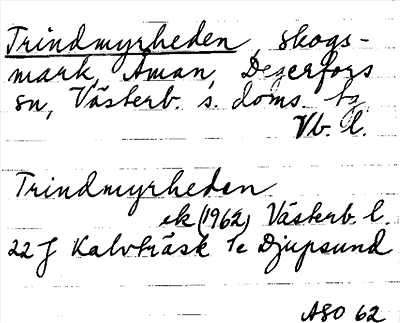 Trindmyrheden, skogs-
mark, Åman, Degerfors
sn, Västerb. s. doms. tg
Vb. l.
Trindmyrheden
ek (1962) Västerb. l.
22 J Kalvträsk 1e Djupsund
ASO 62